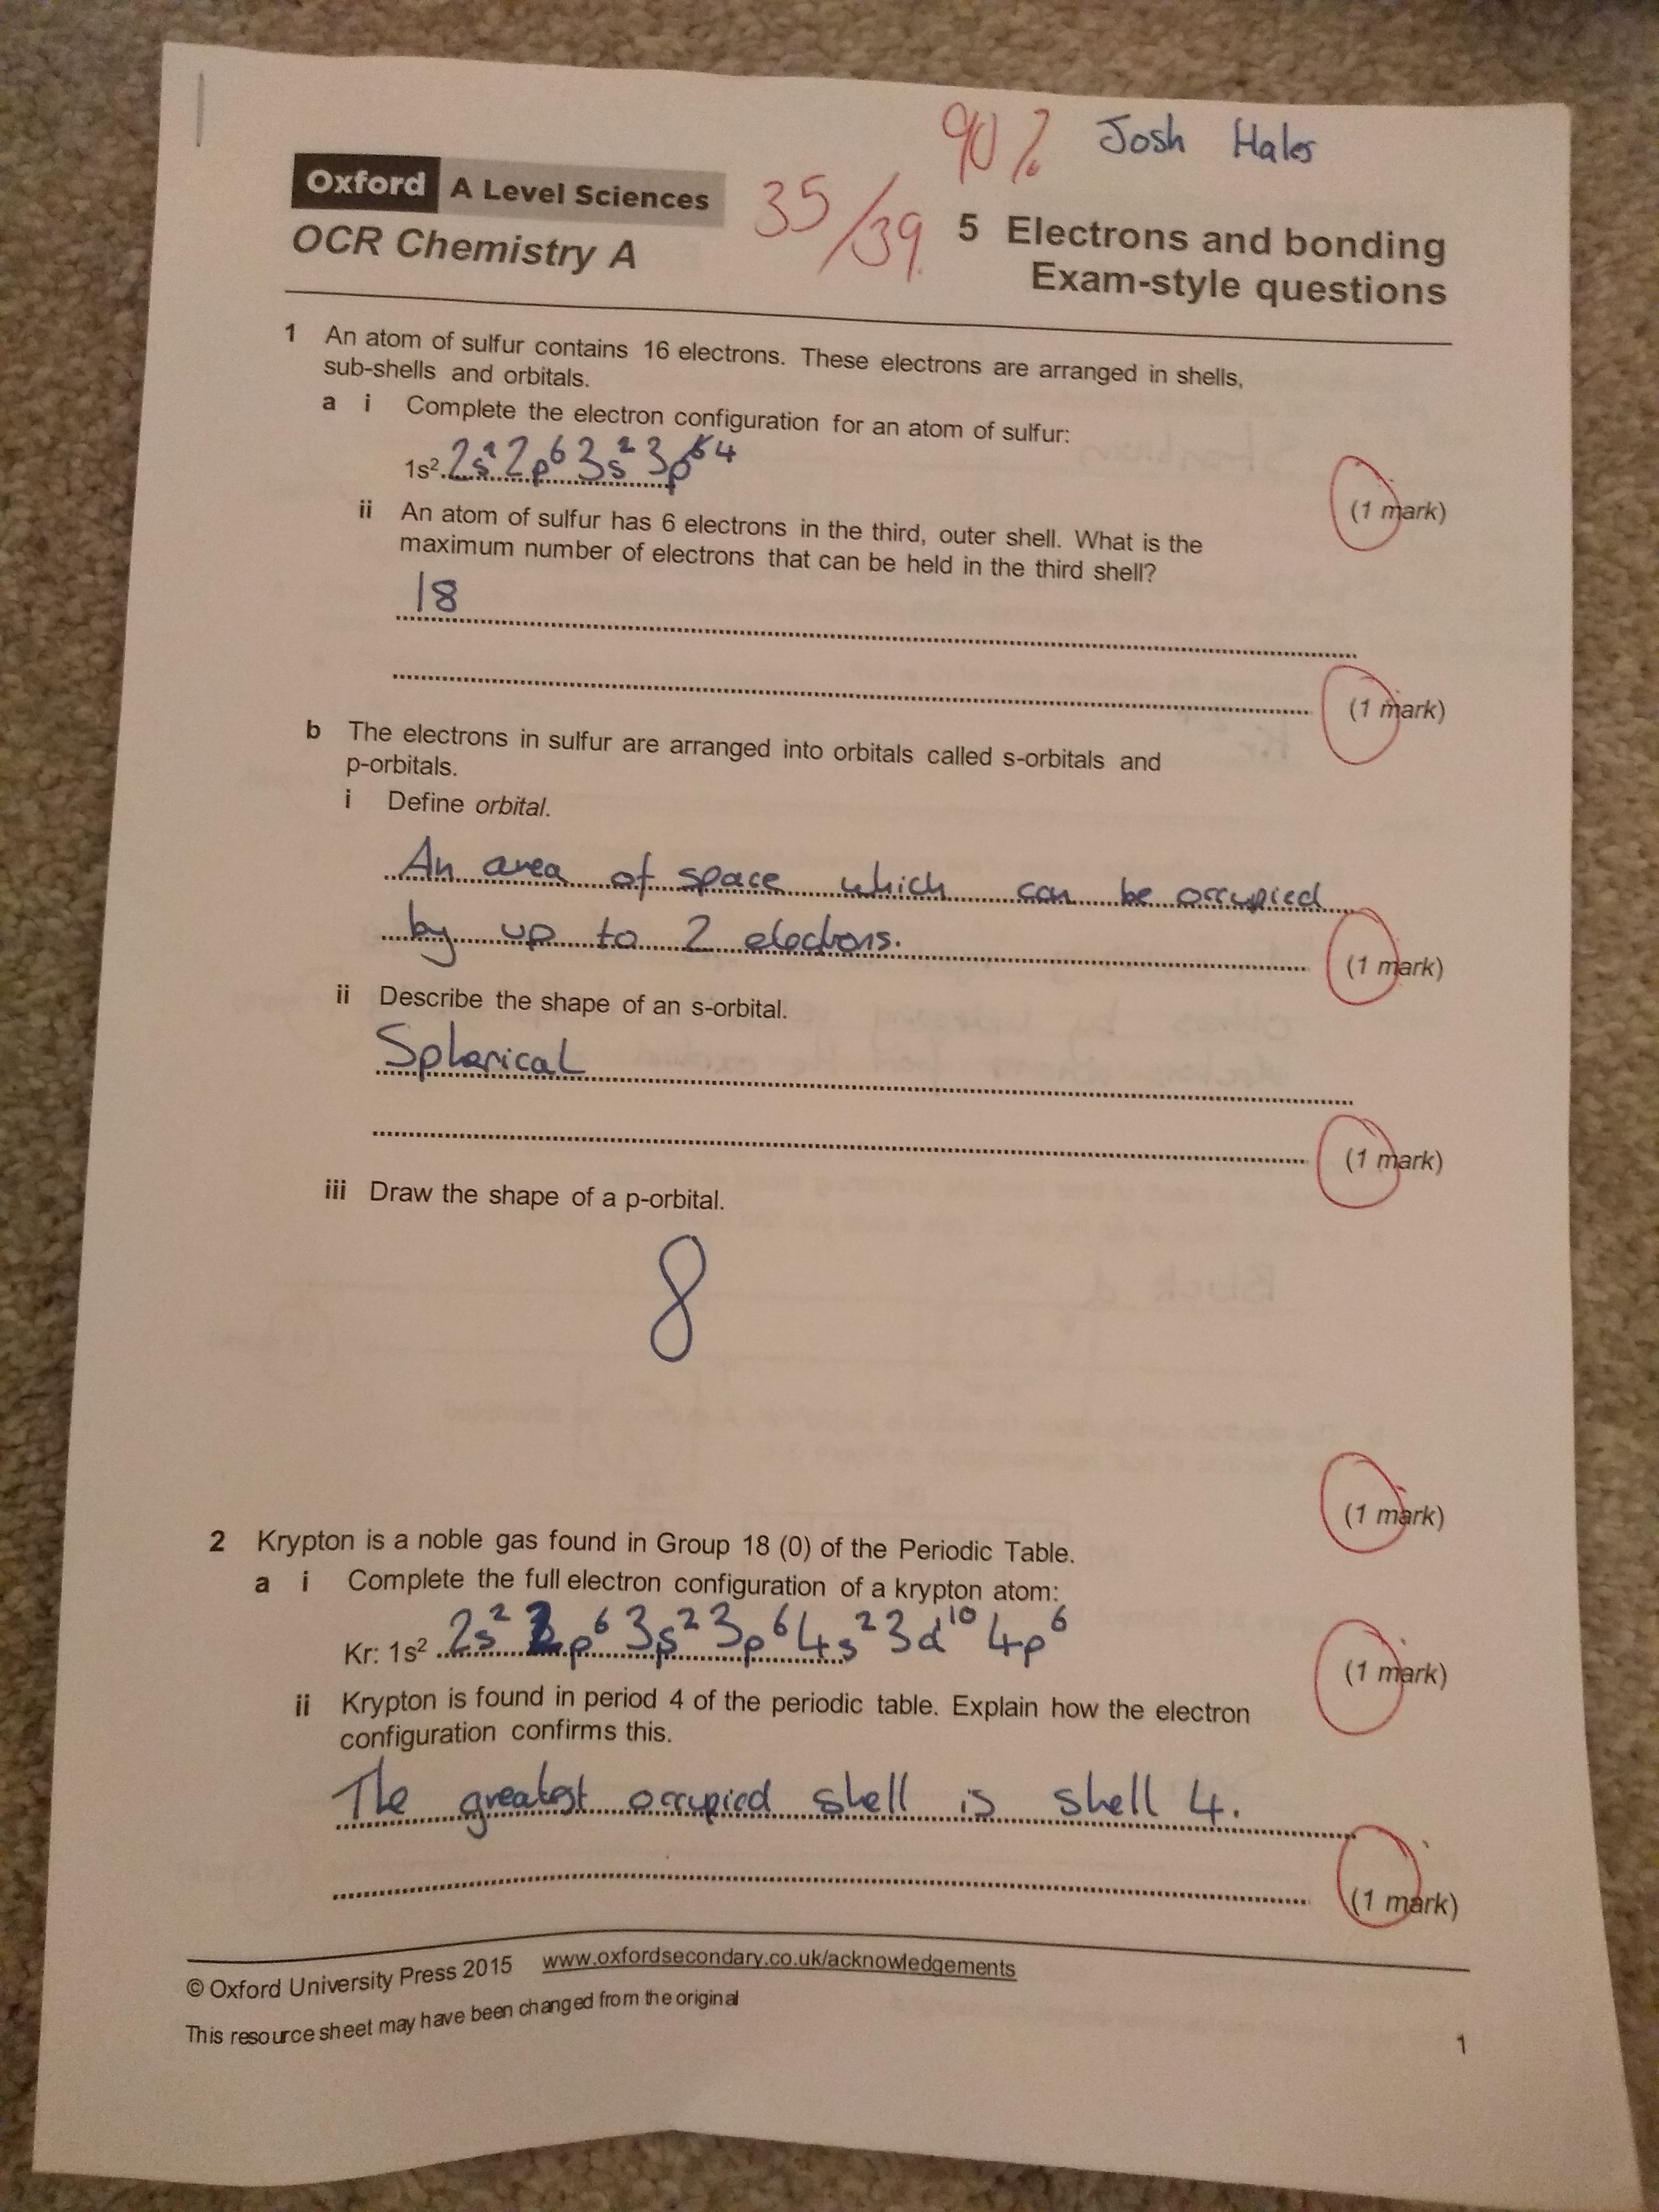 90% Josh Hales
Oxford A Level Sciences 35/39
OCR Chemistry A
5 Electrons and bonding
Exam-style questions
1 An atom of sulfur contains 16 electrons. These electrons are arranged in shells,
sub-shells and orbitals.
a i Complete the electron configuration for an atom of sulfur:
1s² 2s² 2p⁶ 3s² 3p⁴
(1 mark)
ii An atom of sulfur has 6 electrons in the third, outer shell. What is the
maximum number of electrons that can be held in the third shell?
18
(1 mark)
b The electrons in sulfur are arranged into orbitals called s-orbitals and
p-orbitals.
i Define orbital.
An area of space which can be occupied
by up to 2 electrons.
(1 mark)
ii Describe the shape of an s-orbital.
Spherical
(1 mark)
iii Draw the shape of a p-orbital.
(1 mark)
2 Krypton is a noble gas found in Group 18 (0) of the Periodic Table.
a i Complete the full electron configuration of a krypton atom:
Kr: 1s² 2s² 2p⁶ 3s² 3p⁶ 4s² 3d¹⁰ 4p⁶
(1 mark)
ii Krypton is found in period 4 of the periodic table. Explain how the electron
configuration confirms this.
The greatest occupied shell is shell 4.
(1 mark)
© Oxford University Press 2015 www.oxfordsecondary.co.uk/acknowledgements
This resource sheet may have been changed from the original
1